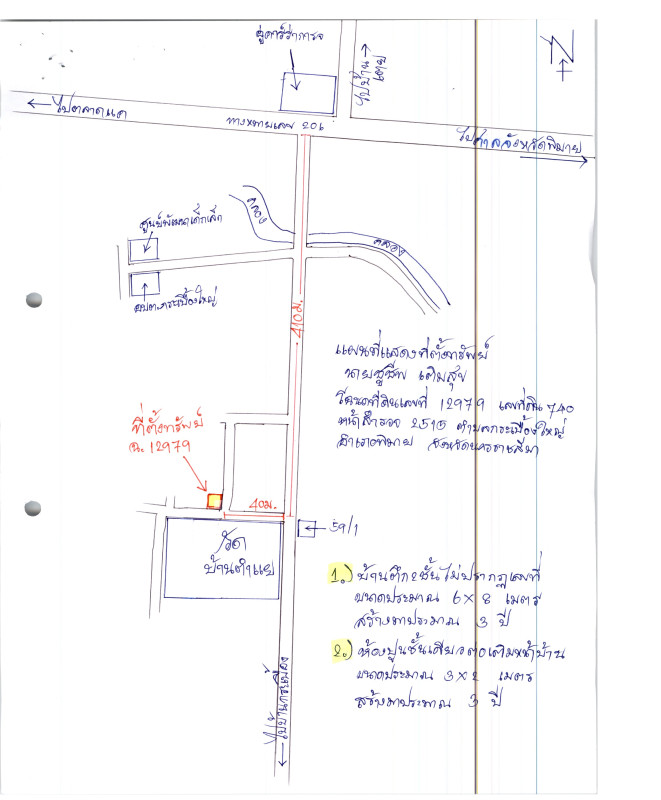 N
ไปบ้านเตย
ไปตลาดแค
ทางหลวงเลข 206
ไปศาลจังหวัดพิมาย
คลอง
คลอง
ศูนย์พัฒนาเด็กเล็ก
อบต.กระเบื้องใหญ่
410 ม.
แผนที่แสดงที่ตั้งทรัพย์
นายชูชีพ เติมสุข
โฉนดที่ดินเลขที่ 12979 เลขที่ดิน 740
หน้าสำรวจ 2515 ตำบลกระเบื้องใหญ่
อำเภอพิมาย จังหวัดนครราชสีมา
ที่ตั้งทรัพย์
ฉ. 12979
40ม.
59/1
วัด
บ้านตำแย
1.) บ้านตึก 2 ชั้น ไม่ปรากฏเลขที่
ขนาดประมาณ 6 x 8 เมตร
สร้างมาประมาณ 3 ปี
2.) ห้องปูนชั้นเดียวต่อเติมหน้าบ้าน
ขนาดประมาณ 3 x 2 เมตร
สร้างมาประมาณ 3 ปี